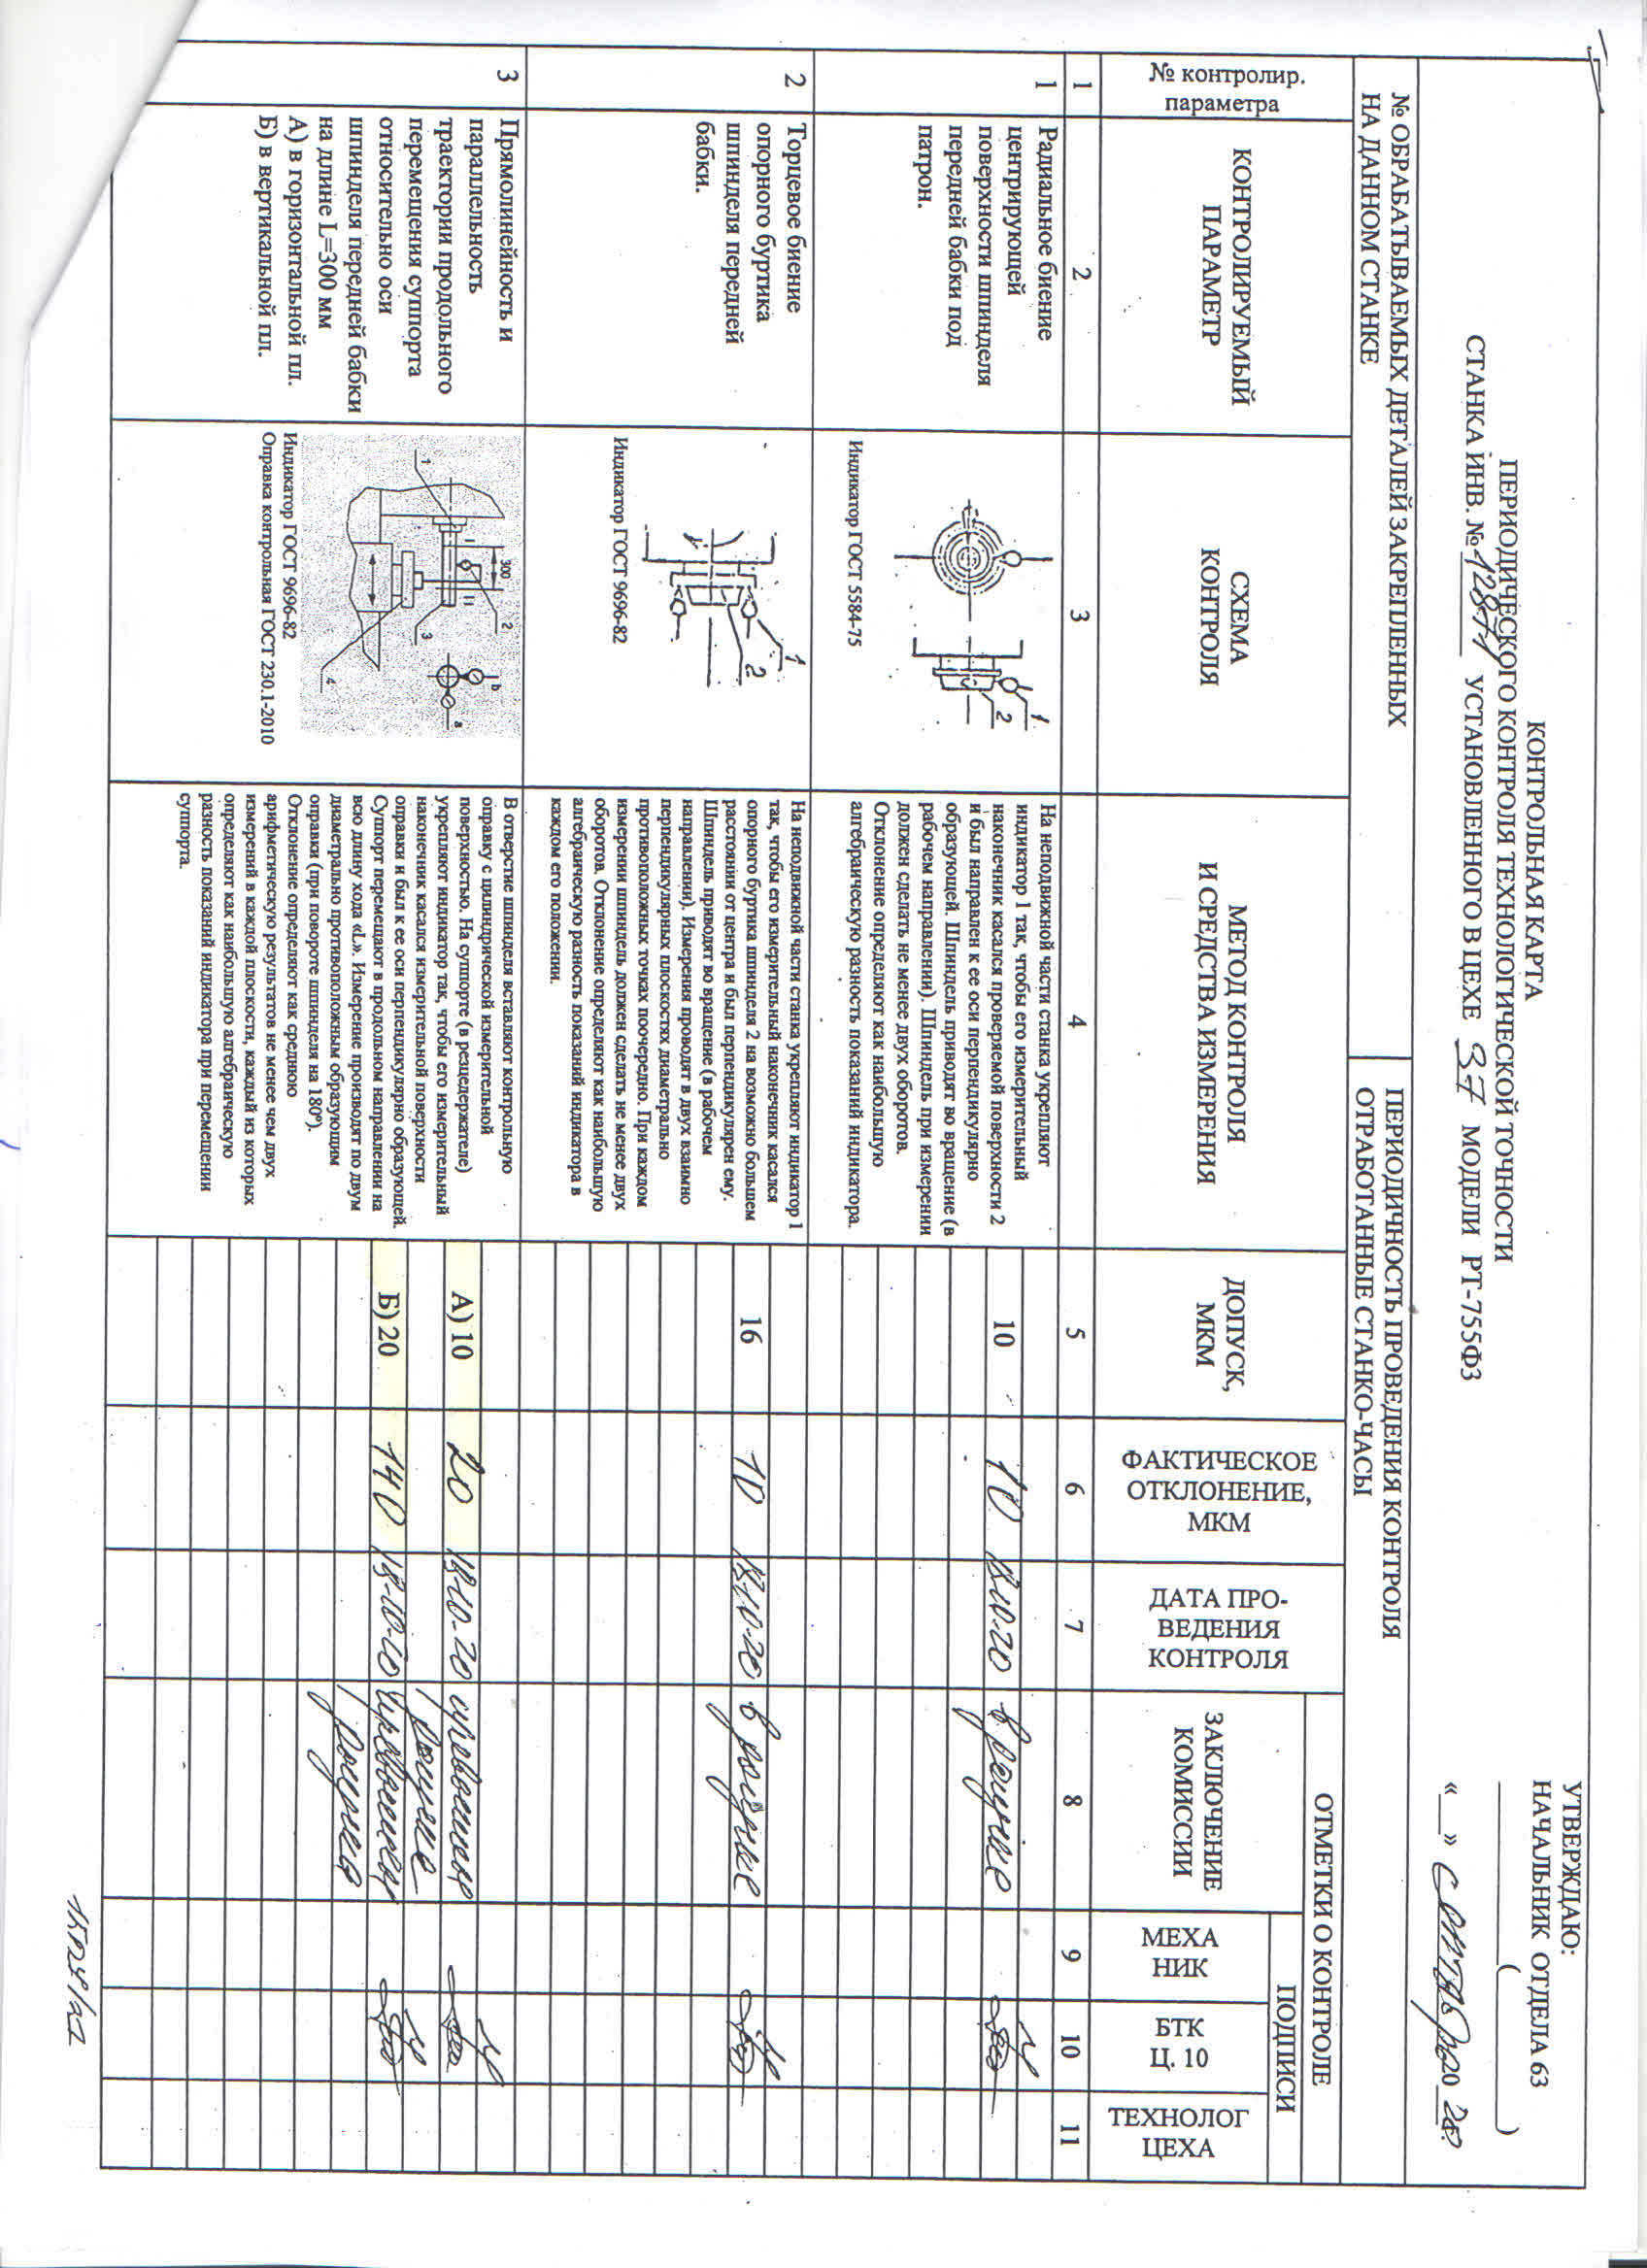 УТВЕРЖДАЮ:
НАЧАЛЬНИК ОТДЕЛА 63
(__________)
«___» сентябрь 2020.
КОНТРОЛЬНАЯ КАРТА
ПЕРИОДИЧЕСКОГО КОНТРОЛЯ ТЕХНОЛОГИЧЕСКОЙ ТОЧНОСТИ
СТАНКА ИНВ. № 12871 УСТАНОВЛЕННОГО В ЦЕХЕ 37 МОДЕЛИ РТ-755Ф3
№ ОБРАБАТЫВАЕМЫХ ДЕТАЛЕЙ ЗАКРЕПЛЕННЫХ
НА ДАННОМ СТАНКЕ
ПЕРИОДИЧНОСТЬ ПРОВЕДЕНИЯ КОНТРОЛЯ
ОТРАБОТАННЫЕ СТАНКО-ЧАСЫ
№ контролир.
параметра
КОНТРОЛИРУЕМЫЙ
ПАРАМЕТР
СХЕМА
КОНТРОЛЯ
МЕТОД КОНТРОЛЯ
И СРЕДСТВА ИЗМЕРЕНИЯ
ДОПУСК,
МКМ
ФАКТИЧЕСКОЕ
ОТКЛОНЕНИЕ,
МКМ
ДАТА ПРО-
ВЕДЕНИЯ
КОНТРОЛЯ
ОТМЕТКИ О КОНТРОЛЕ
ЗАКЛЮЧЕНИЕ
КОМИССИИ
ПОДПИСИ
МЕХА
НИК
БТК
Ц. 10
ТЕХНОЛОГ
ЦЕХА
1 2 3 4 5 6 7 8 9 10 11
1
Радиальное биение
центрирующей
поверхности шпинделя
передней бабки под
патрон.
1
2
Индикатор ГОСТ 5584-75
На неподвижной части станка укрепляют
индикатор 1 так, чтобы его измерительный
наконечник касался проверяемой поверхности 2
и был направлен к ее оси перпендикулярно
образующей. Шпиндель приводят во вращение (в
рабочем направлении). Шпиндель при измерении
должен сделать не менее двух оборотов.
Отклонение определяют как наибольшую
алгебраическую разность показаний индикатора.
10 10 13-10-20 в допуске
2
Торцевое биение
опорного буртика
шпинделя передней
бабки.
1
2
Индикатор ГОСТ 9696-82
На неподвижной части станка укрепляют индикатор 1
так, чтобы его измерительный наконечник касался
опорного буртика шпинделя 2 на возможно большем
расстоянии от центра и был перпендикулярен ему.
Шпиндель приводят во вращение (в рабочем
направлении). Измерения проводят в двух взаимно
перпендикулярных плоскостях диаметрально
противоположных точках поочередно. При каждом
измерении шпиндель должен сделать не менее двух
оборотов. Отклонение определяют как наибольшую
алгебраическую разность показаний индикатора в
каждом его положении.
16 10 13-10-20 в допуске
3
Прямолинейность и
параллельность
траектории продольного
перемещения суппорта
относительно оси
шпинделя передней бабки
на длине L=300 мм
А) в горизонтальной пл.
Б) в вертикальной пл.
300 2 b
I II a
1 3
4
Индикатор ГОСТ 9696-82
Оправка контрольная ГОСТ 230.1-2010
В отверстие шпинделя вставляют контрольную
оправку с цилиндрической измерительной
поверхностью. На суппорте (в резцедержателе)
укрепляют индикатор так, чтобы его измерительный
наконечник касался измерительной поверхности
оправки и был к ее оси перпендикулярно образующей.
Суппорт перемещают в продольном направлении на
всю длину хода «L». Измерение производят по двум
диаметрально противоположным образующим
оправки (при повороте шпинделя на 180°).
Отклонение определяют как среднюю
арифметическую результатов не менее чем двух
измерений в каждой плоскости, каждый из которых
определяют как наибольшую алгебраическую
разность показаний индикатора при перемещении
суппорта.
А) 10 20 13-10-20 превышен
допуска
Б) 20 140 13-10-20 превышен
допуска